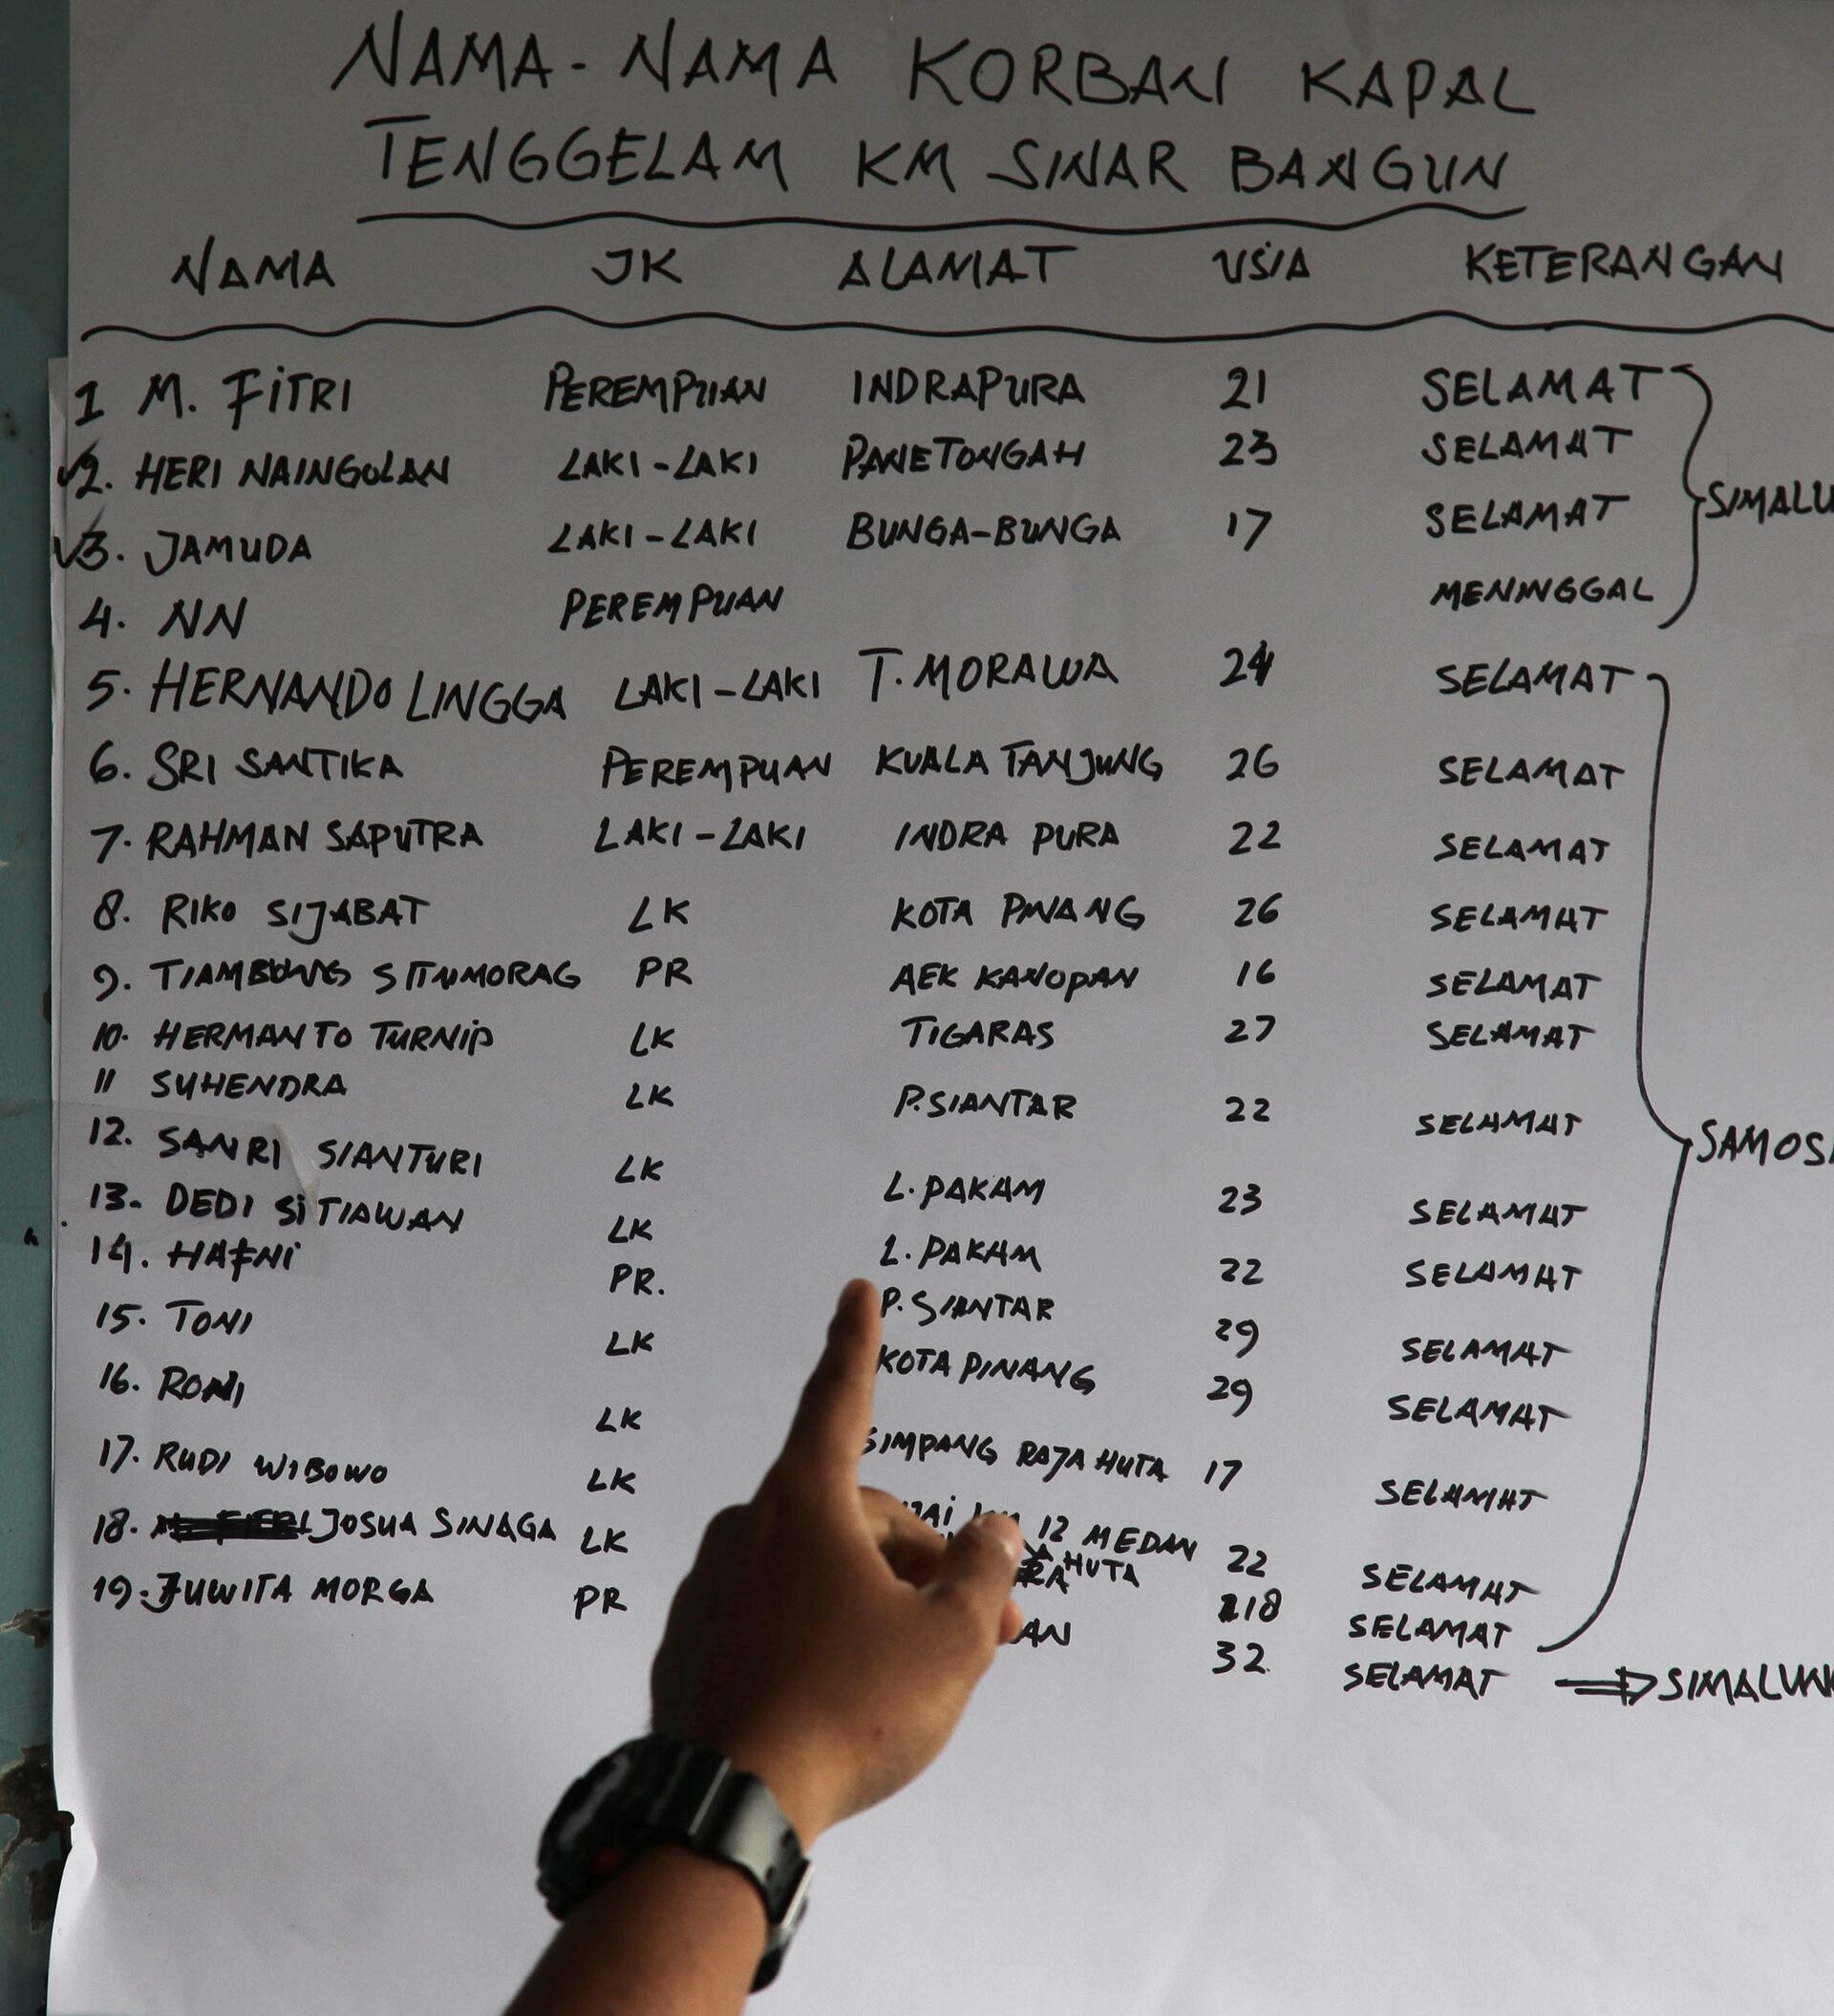 NAMA-NAMA KORBAN KAPAL
TENGGELAM KM SINAR BANGUN
NAMA JK ALAMAT USIA KETERANGAN
1 M. FITRI PEREMPUAN INDRAPURA 21 SELAMAT
2. HERI NAINGOLAN LAKI-LAKI PANETONGAH 23 SELAMAT
SIMALU
3. JAMUDA LAKI-LAKI BUNGA-BUNGA 17 SELAMAT
4. NN PEREMPUAN MENINGGAL
5. HERNANDO LINGGA LAKI-LAKI T. MORAWA 24 SELAMAT
6. SRI SANTIKA PEREMPUAN KUALA TANJUNG 26 SELAMAT
7. RAHMAN SAPUTRA LAKI-LAKI INDRA PURA 22 SELAMAT
8. RIKO SIJABAT LK KOTA PINANG 26 SELAMAT
9. TIAMBUNG SITUMORAG PR AEK KANOPAN 16 SELAMAT
10. HERMANTO TURNIP LK TIGARAS 27 SELAMAT
11 SUHENDRA LK P.SIANTAR 22 SELAMAT
SAMOSI
12. SANRI SIANTURI LK L. PAKAM 23 SELAMAT
13. DEDI SITIAWAN LK L. PAKAM 22 SELAMAT
14. HAFNI PR. P. SIANTAR 29 SELAMAT
15. TONI LK KOTA PINANG 29 SELAMAT
16. RONI LK SIMPANG RAJA HUTA 17 SELAMAT
17. RUDI WIBOWO LK 12 MEDAN 22 SELAMAT
18. JOSUA SINAGA LK HUTA 18 SELAMAT
19. JUWITA MORGA PR AN 32 SELAMAT ⇒ SIMALUN